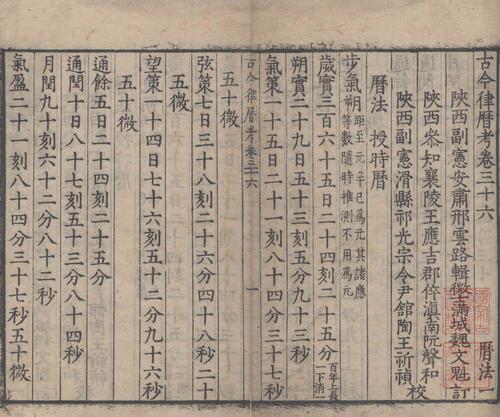 古今律曆考卷三十六 曆法一
陝西副憲安肅邢雲路輯 徵士滿城魏文魁訂
陝西叅知襄陵王應吉郡倅滇南阮聲和
陝西副憲滑縣祁光宗令尹舘陶王祈禎 校
曆法 授時曆
步氣朔 距至元辛巳為元其諸應等數隨時推測不用為元
歲實三百六十五日二十四刻二十五分
朔實二十九日五十三刻
氣策一十五日二十一刻八十四分三十七秒
五十微
古今律曆考卷三十六 一
弦策七日三十八刻二十六分四十八秒二十
五微
望策一十四日七十六刻五十二分九十六秒
五十微
通餘五日二十四刻二十五分
通閏十日八十七刻五十三分八十四秒
月閏九十刻六十二分八十二秒
氣盈二十一刻八十四分三十七秒五十微